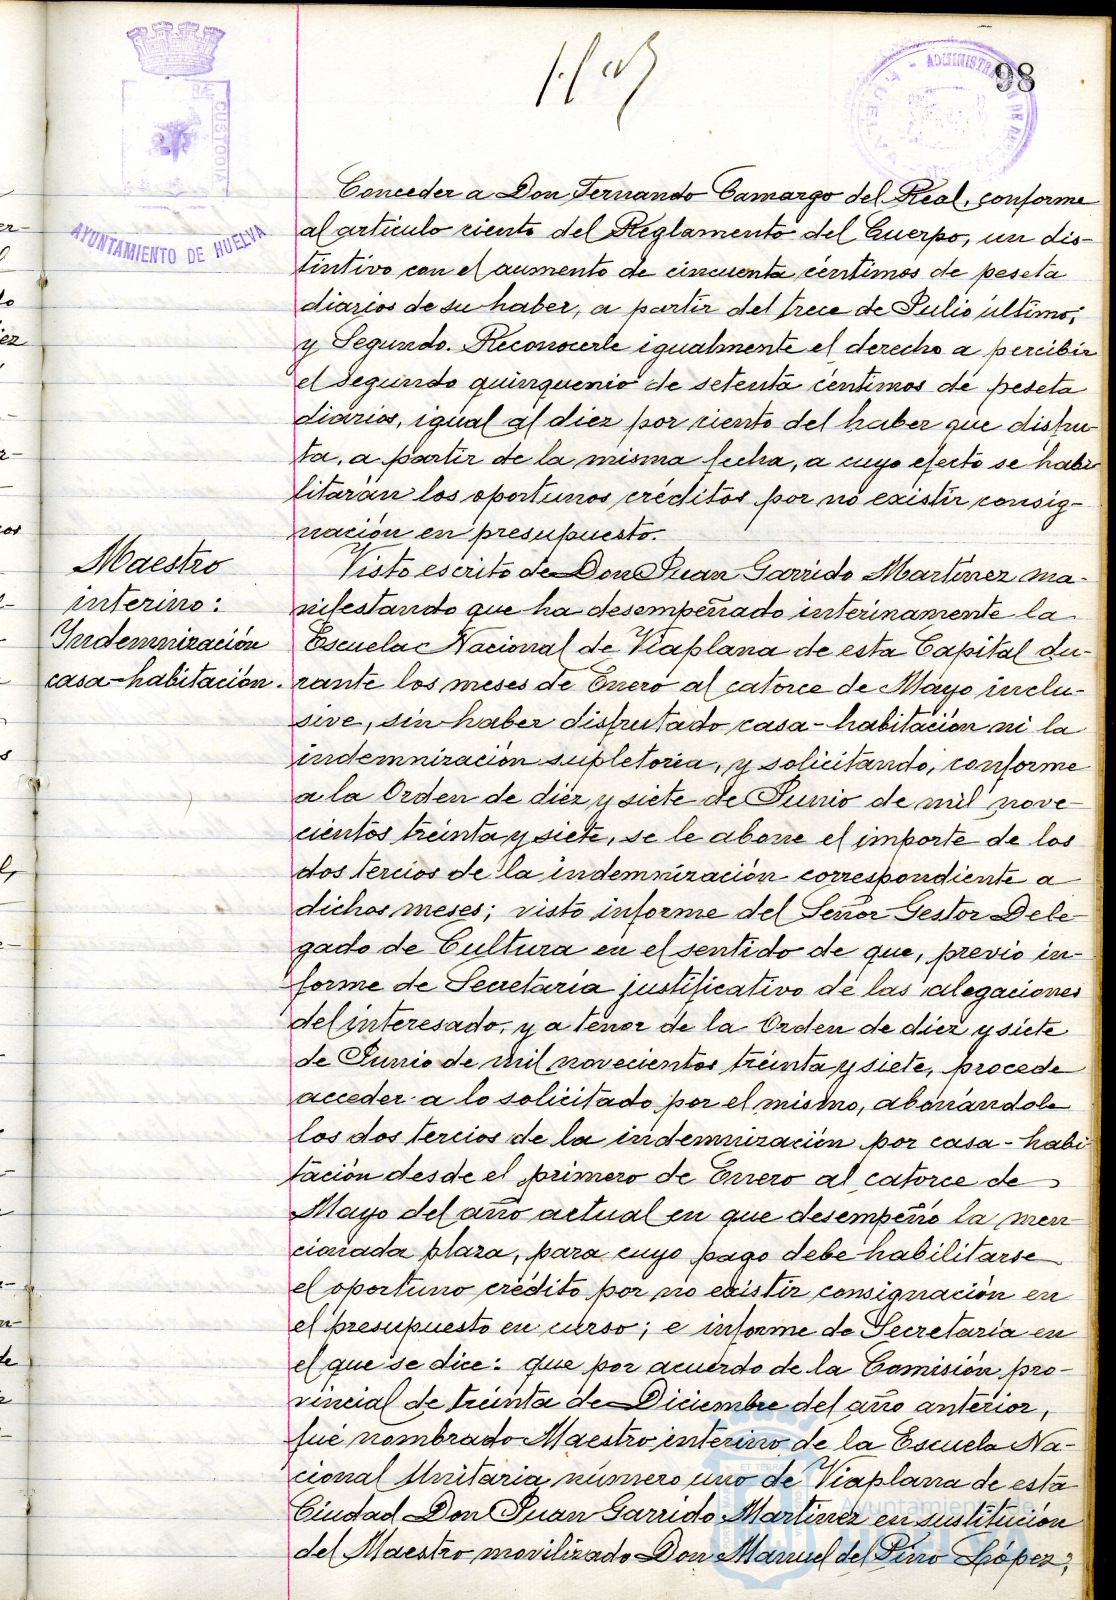 98
AYUNTAMIENTO DE HUELVA
Conceder a Don Fernando Camargo del Real, conforme
al artículo ciento del Reglamento del Cuerpo, un dis-
tintivo con el aumento de cincuenta céntimos de peseta
diarios de su haber, a partir del trece de Julio último;
y Segundo. Reconocerle igualmente el derecho a percibir
el segundo quinquenio de setenta céntimos de peseta
diarios, igual al diez por ciento del haber que disfru-
ta, a partir de la misma fecha, a cuyo efecto se habi-
litarán los oportunos créditos por no existir consig-
nación en presupuesto.
Maestro
interino:
Indemnización
casa-habitación.
Visto escrito de Don Juan Garrido Martínez ma-
nifestando que ha desempeñado interinamente la
Escuela Nacional de Viaplana de esta Capital du-
rante los meses de Enero al catorce de Mayo inclu-
sive, sin haber disfrutado casa-habitación ni la
indemnización supletoria, y solicitando, conforme
a la Orden de diez y siete de Junio de mil nove-
cientos treinta y siete, se le abone el importe de los
dos tercios de la indemnización correspondiente a
dichos meses; visto informe del Señor Gestor Dele-
gado de Cultura en el sentido de que, previo in-
forme de Secretaría justificativo de las alegaciones
del interesado, y a tenor de la Orden de diez y siete
de Junio de mil novecientos treinta y siete, procede
acceder a lo solicitado por el mismo, abonándole
los dos tercios de la indemnización por casa-habi-
tación desde el primero de Enero al catorce de
Mayo del año actual en que desempeñó la men-
cionada plaza, para cuyo pago debe habilitarse
el oportuno crédito por no existir consignación en
el presupuesto en curso; e informe de Secretaría en
el que se dice: que por acuerdo de la Comisión pro-
vincial de treinta de Diciembre del año anterior,
fué nombrado Maestro interino de la Escuela Na-
cional Unitaria número uno de Viaplana de esta
Ciudad Don Juan Garrido Martínez en sustitución
del Maestro movilizado Don Manuel del Pino López;
Ayuntamiento de
HUELVA